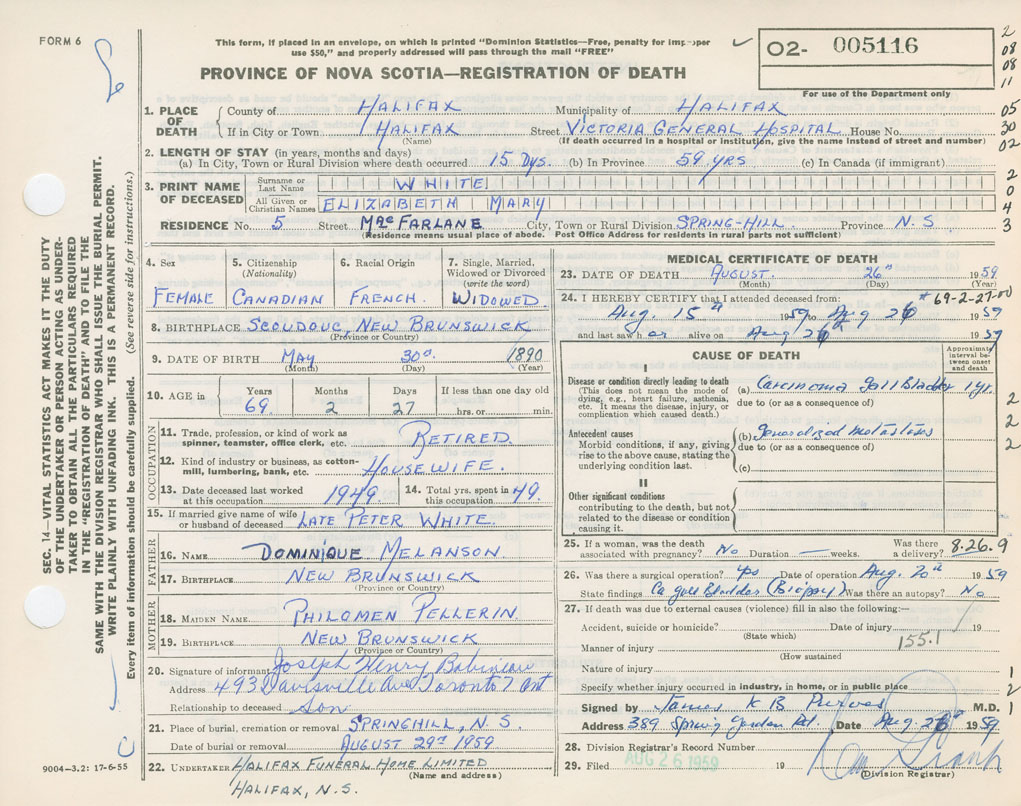 FORM 6
This form, if placed in an envelope, on which is printed "Dominion Statistics—Free, penalty for improper
use $50," and properly addressed will pass through the mail "FREE"
PROVINCE OF NOVA SCOTIA—REGISTRATION OF DEATH
O2- 005116
For use of the Department only
2
08
08
11
05
30
02
2
0
4
3
1. PLACE OF DEATH
County of HALIFAX Municipality of HALIFAX
If in City or Town HALIFAX Street VICTORIA GENERAL HOSPITAL House No.
(Name) (If death occurred in a hospital or institution, give the name instead of street and number)
2. LENGTH OF STAY (in years, months and days)
(a) In City, Town or Rural Division where death occurred 15 Dys. (b) In Province 59 yrs (c) In Canada (if immigrant)
3. PRINT NAME OF DECEASED
Surname or Last Name WHITE
All Given or Christian Names ELIZABETH MARY
RESIDENCE No. 5 Street MacFARLANE City, Town or Rural Division SPRING-HILL Province N. S
(Residence means usual place of abode. Post Office Address for residents in rural parts not sufficient)
4. Sex FEMALE
5. Citizenship (Nationality) CANADIAN
6. Racial Origin FRENCH.
7. Single, Married, Widowed or Divorced (write the word) WIDOWED
8. BIRTHPLACE SCOUDOUC, NEW BRUNSWICK
(Province or Country)
9. DATE OF BIRTH MAY 30th 1890
(Month) (Day) (Year)
10. AGE in Years 69 Months 2 Days 27 If less than one day old hrs. or min.
OCCUPATION
11. Trade, profession, or kind of work as spinner, teamster, office clerk, etc. RETIRED
12. Kind of industry or business, as cotton-mill, lumbering, bank, etc. HOUSEWIFE.
13. Date deceased last worked at this occupation 1949
14. Total yrs. spent in this occupation 49
15. If married give name of wife or husband of deceased LATE PETER WHITE.
FATHER
16. NAME DOMINIQUE MELANSON
17. BIRTHPLACE NEW BRUNSWICK
(Province or Country)
MOTHER
18. MAIDEN NAME PHILOMEN PELLERIN
19. BIRTHPLACE NEW BRUNSWICK
(Province or Country)
20. Signature of informant Joseph Henry Babineau
Address 493 Davisville Ave Toronto 7 Ont
Relationship to deceased Son
21. Place of burial, cremation or removal SPRINGHILL, N. S.
Date of burial or removal AUGUST 29th 1959
22. UNDERTAKER HALIFAX FUNERAL HOME LIMITED
(Name and address)
HALIFAX, N. S.
9004-3.2: 17-6-55
MEDICAL CERTIFICATE OF DEATH
23. DATE OF DEATH AUGUST. 26th 1959
(Month) (Day) (Year)
24. I HEREBY CERTIFY that I attended deceased from: # 69-2-27-00
Aug. 15th 1959 to Aug 26 1959
and last saw h er alive on Aug 26 1959
CAUSE OF DEATH
Approximate interval between onset and death
I
Disease or condition directly leading to death
(This does not mean the mode of dying, e.g., heart failure, asthenia, etc. It means the disease, injury, or complication which caused death.)
(a) Carcinoma Gall Bladder 1 yr.
due to (or as a consequence of)
Antecedent causes
Morbid conditions, if any, giving rise to the above cause, stating the underlying condition last.
(b) Generalized metastases
due to (or as a consequence of)
(c)
II
Other significant conditions
contributing to the death, but not related to the disease or condition causing it.
2
2
2
25. If a woman, was the death associated with pregnancy? No Duration — weeks. Was there a delivery? 8-26.9
26. Was there a surgical operation? yes Date of operation Aug. 20th 1959
State findings Ca gall Bladder (Biopsy) Was there an autopsy? No
27. If death was due to external causes (violence) fill in also the following:—
Accident, suicide or homicide? Date of injury 19
(State which)
155.1
Manner of injury
(How sustained
Nature of injury
Specify whether injury occurred in industry, in home, or in public place
1
2
1
Signed by James K B Purves M.D.
Address 389 Spring Garden Rd. Date Aug. 26 1959
28. Division Registrar's Record Number
29. Filed AUG 26 1959 19
(Division Registrar)
SEC. 14—VITAL STATISTICS ACT MAKES IT THE DUTY
OF THE UNDERTAKER OR PERSON ACTING AS UNDER-
TAKER TO OBTAIN ALL THE PARTICULARS REQUIRED
IN THE "REGISTRATION OF DEATH" AND TO FILE THE
SAME WITH THE DIVISION REGISTRAR WHO SHALL ISSUE THE BURIAL PERMIT.
WRITE PLAINLY WITH UNFADING INK. THIS IS A PERMANENT RECORD.
Every item of information should be carefully supplied. (See reverse side for instructions.)